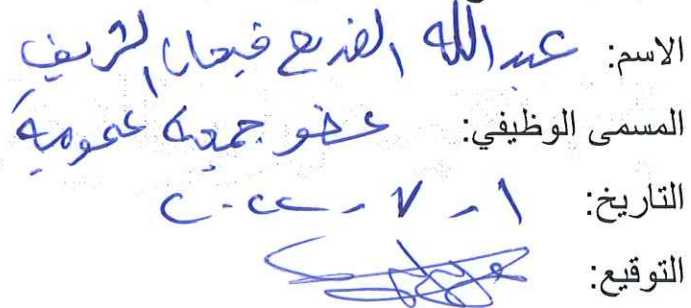 الاسم: عبدالله فيحان الشريف
المسمى الوظيفي: عضو جمعية عمومية
التاريخ: ١ - ٧ - ٢٠٢٢
التوقيع: